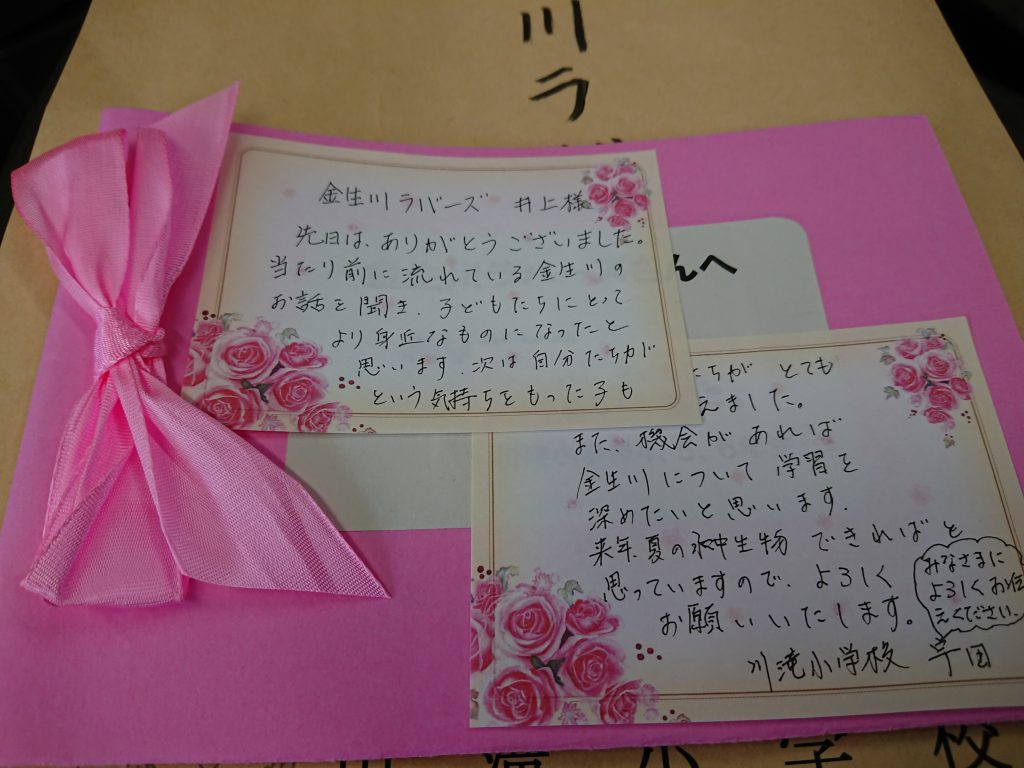 川ラ
金生川ラバーズ 井上様へ
先日は、ありがとうございました。
当たり前に流れている金生川の
お話を聞き、子どもたちにとって
より身近なものになったと
思います。次は自分たちが
という気持ちをもった子も
んへ
たちが とても
えました。
また、機会があれば
金生川について学習を
深めたいと思います。
来年、夏の水中生物 できればと
思っていますので、よろしく
お願いいたします。
みなさまに
よろしくお伝
えください。
川滝小学校
川滝小学校